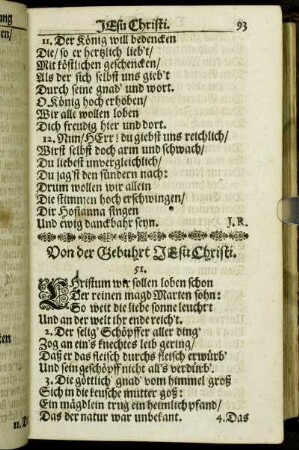 JEsu Christi. 93
11. Der König will bedencken
Die/ so er hertzlich lieb't/
Mit köstlichen geschencken/
Als der sich selbst uns gieb't
Durch seine gnad' und wort.
O König hoch erhoben/
Wir alle wollen loben
Dich freudig hier und dort.
12. Nun/ HErr! du giebst uns reichlich/
Wirst selbst doch arm und schwach/
Du liebest unvergleichlich/
Du jag'st den sündern nach:
Drum wollen wir allein
Die stimmen hoch erschwingen/
Dir Hosianna singen
Und ewig danckbahr seyn. J. R.
Von der Gebuhrt JEsu Christi.
51.
CHristum wir sollen loben schon
Der reinen magd Marien sohn:
So weit die liebe sonne leucht't
Und an der welt ihr ende reich't.
2. Der selig' Schöpffer aller ding'
Zog an ein's knechtes leib gering/
Daß er das fleisch durchs fleisch erwürb'
Und sein geschöpf nicht all's verdürb'.
3. Die göttlich' gnad' vom himmel groß
Sich in die keusche mutter goß:
Ein mägdlein trug ein heimlich pfand/
Das der natur war unbekant. 4. Das